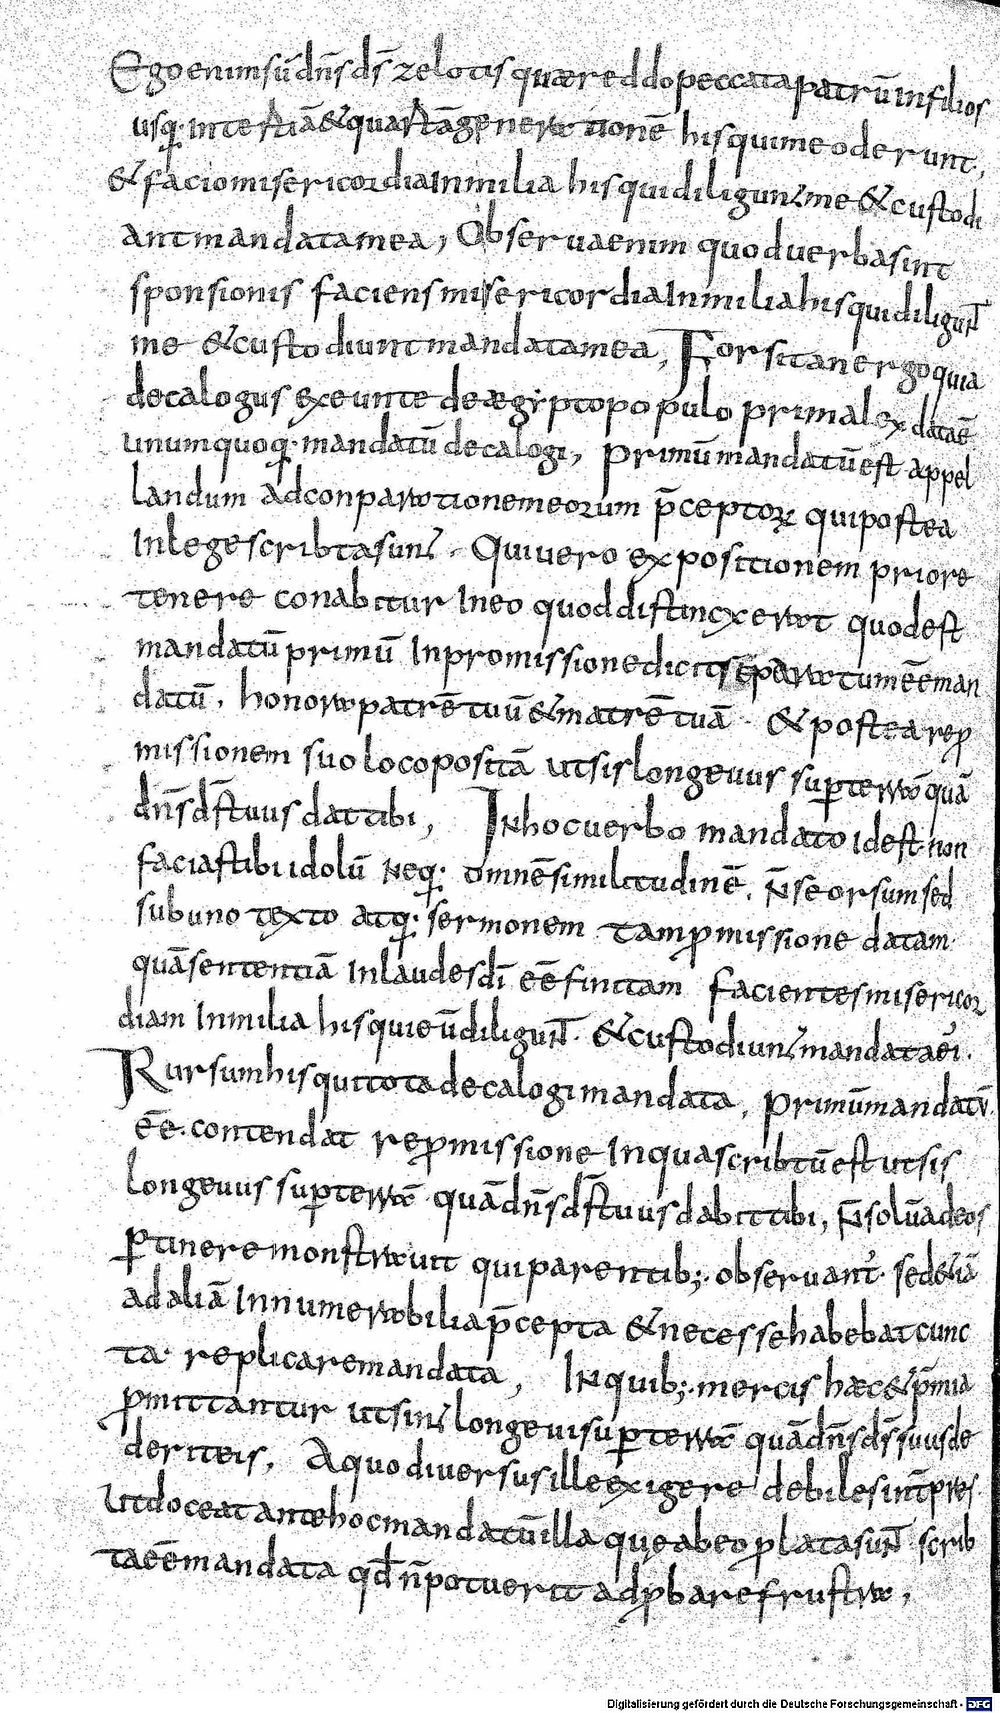 Ego enim sū dn̄s ds̄ zelotis quæ reddo peccata patrū in filios
usq; in tertiā & quartā generationē his qui me oderunt,
& facio misericordia In milia his qui diligunt me & custodi
ant mandata mea, Observa enim quod verba sint
sponsionis faciens misericordia In milia his qui diligunt
me & custodiunt mandata mea, Forsitan ergo quia
decalogus exeunte de ægypto populo prima lex data ē
unumquoq; mandatū decalogi, primū mandatū est appel
landum ad conparationem eorum p̄ceptorꝝ qui postea
In lege scribta sunt. Qui vero expositionem priore
tenere conabitur In eo quod distinxerat quod est
mandatū primū In promissione dicit separatum eē man
datū. honora patrē tuū & matrē tuā. & postea rep̱
missionem suo loco positā ut sis longevus sup̱ terrā quā
dn̄s ds̄ tuus dat tibi, In hoc verbo mandato id est non
facias tibi idolū neq; omnē similitudinē. n̄ seorsum sed
sub uno texto atq; sermonem tam ꝓmissione datam
quā sententiā In laudes dī eē finitam facientes misericor
diam In milia his qui eū diligunt. & custodiunt mandata ei'.
Rursum his qui tota decalogi mandata, primū mandatū
eē contendat reꝓmissione In qua scribtū est ut sis
longevus sup̱ terrā quā dn̄s ds̄ tuus dabit tibi, n̄ solū ad eos
p̱tinere monstravit qui parentib; observant. sed etiā
ad aliā Innumerabilia p̄cepta & necesse habebat cunc
ta replicare mandata, In quib; mercis hæc & p̄mia
ꝓmittantur ut sint longevi sup̱ terrā quā dn̄s ds̄ suus de
derit eis. A quo diversus ille exigere debile sint
Ut doceat ante hoc mandatū illa quę ab eo ꝓlata sunt scrib
ta eē mandata qd̄ n̄ potuerit adꝓbare frustra,
Digitalisierung gefördert durch die Deutsche Forschungsgemeinschaft - DFG